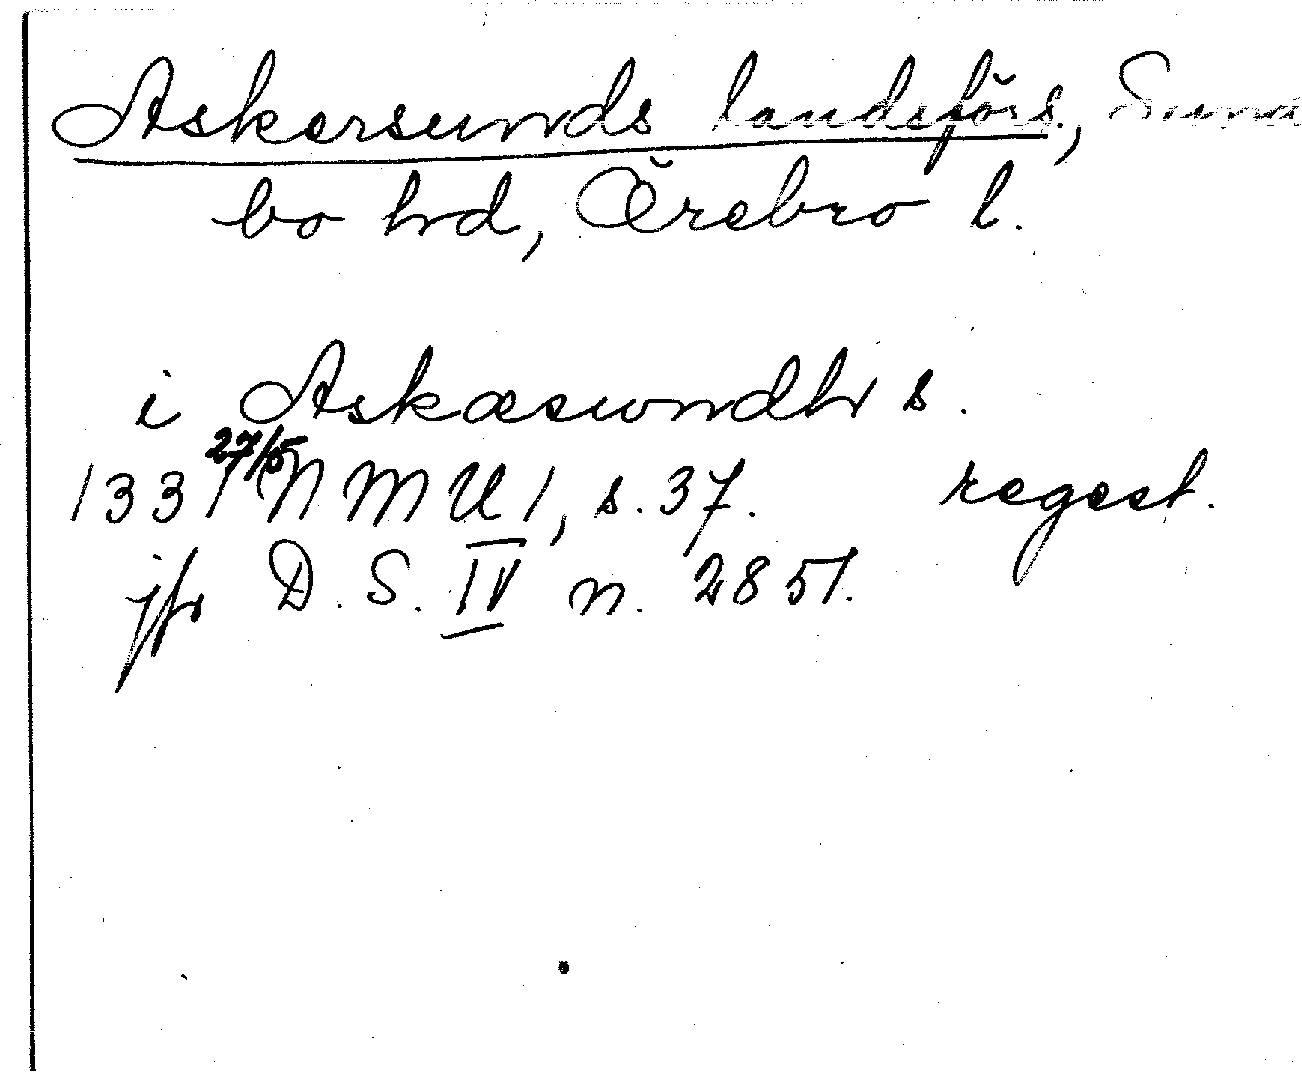 Askersunds landsförs., Sund
bo hd, Örebro l.
i Askæswndh s.
1331 27/5 NMU 1, s. 37. regest.
jfr D. S. IV n. 2851.